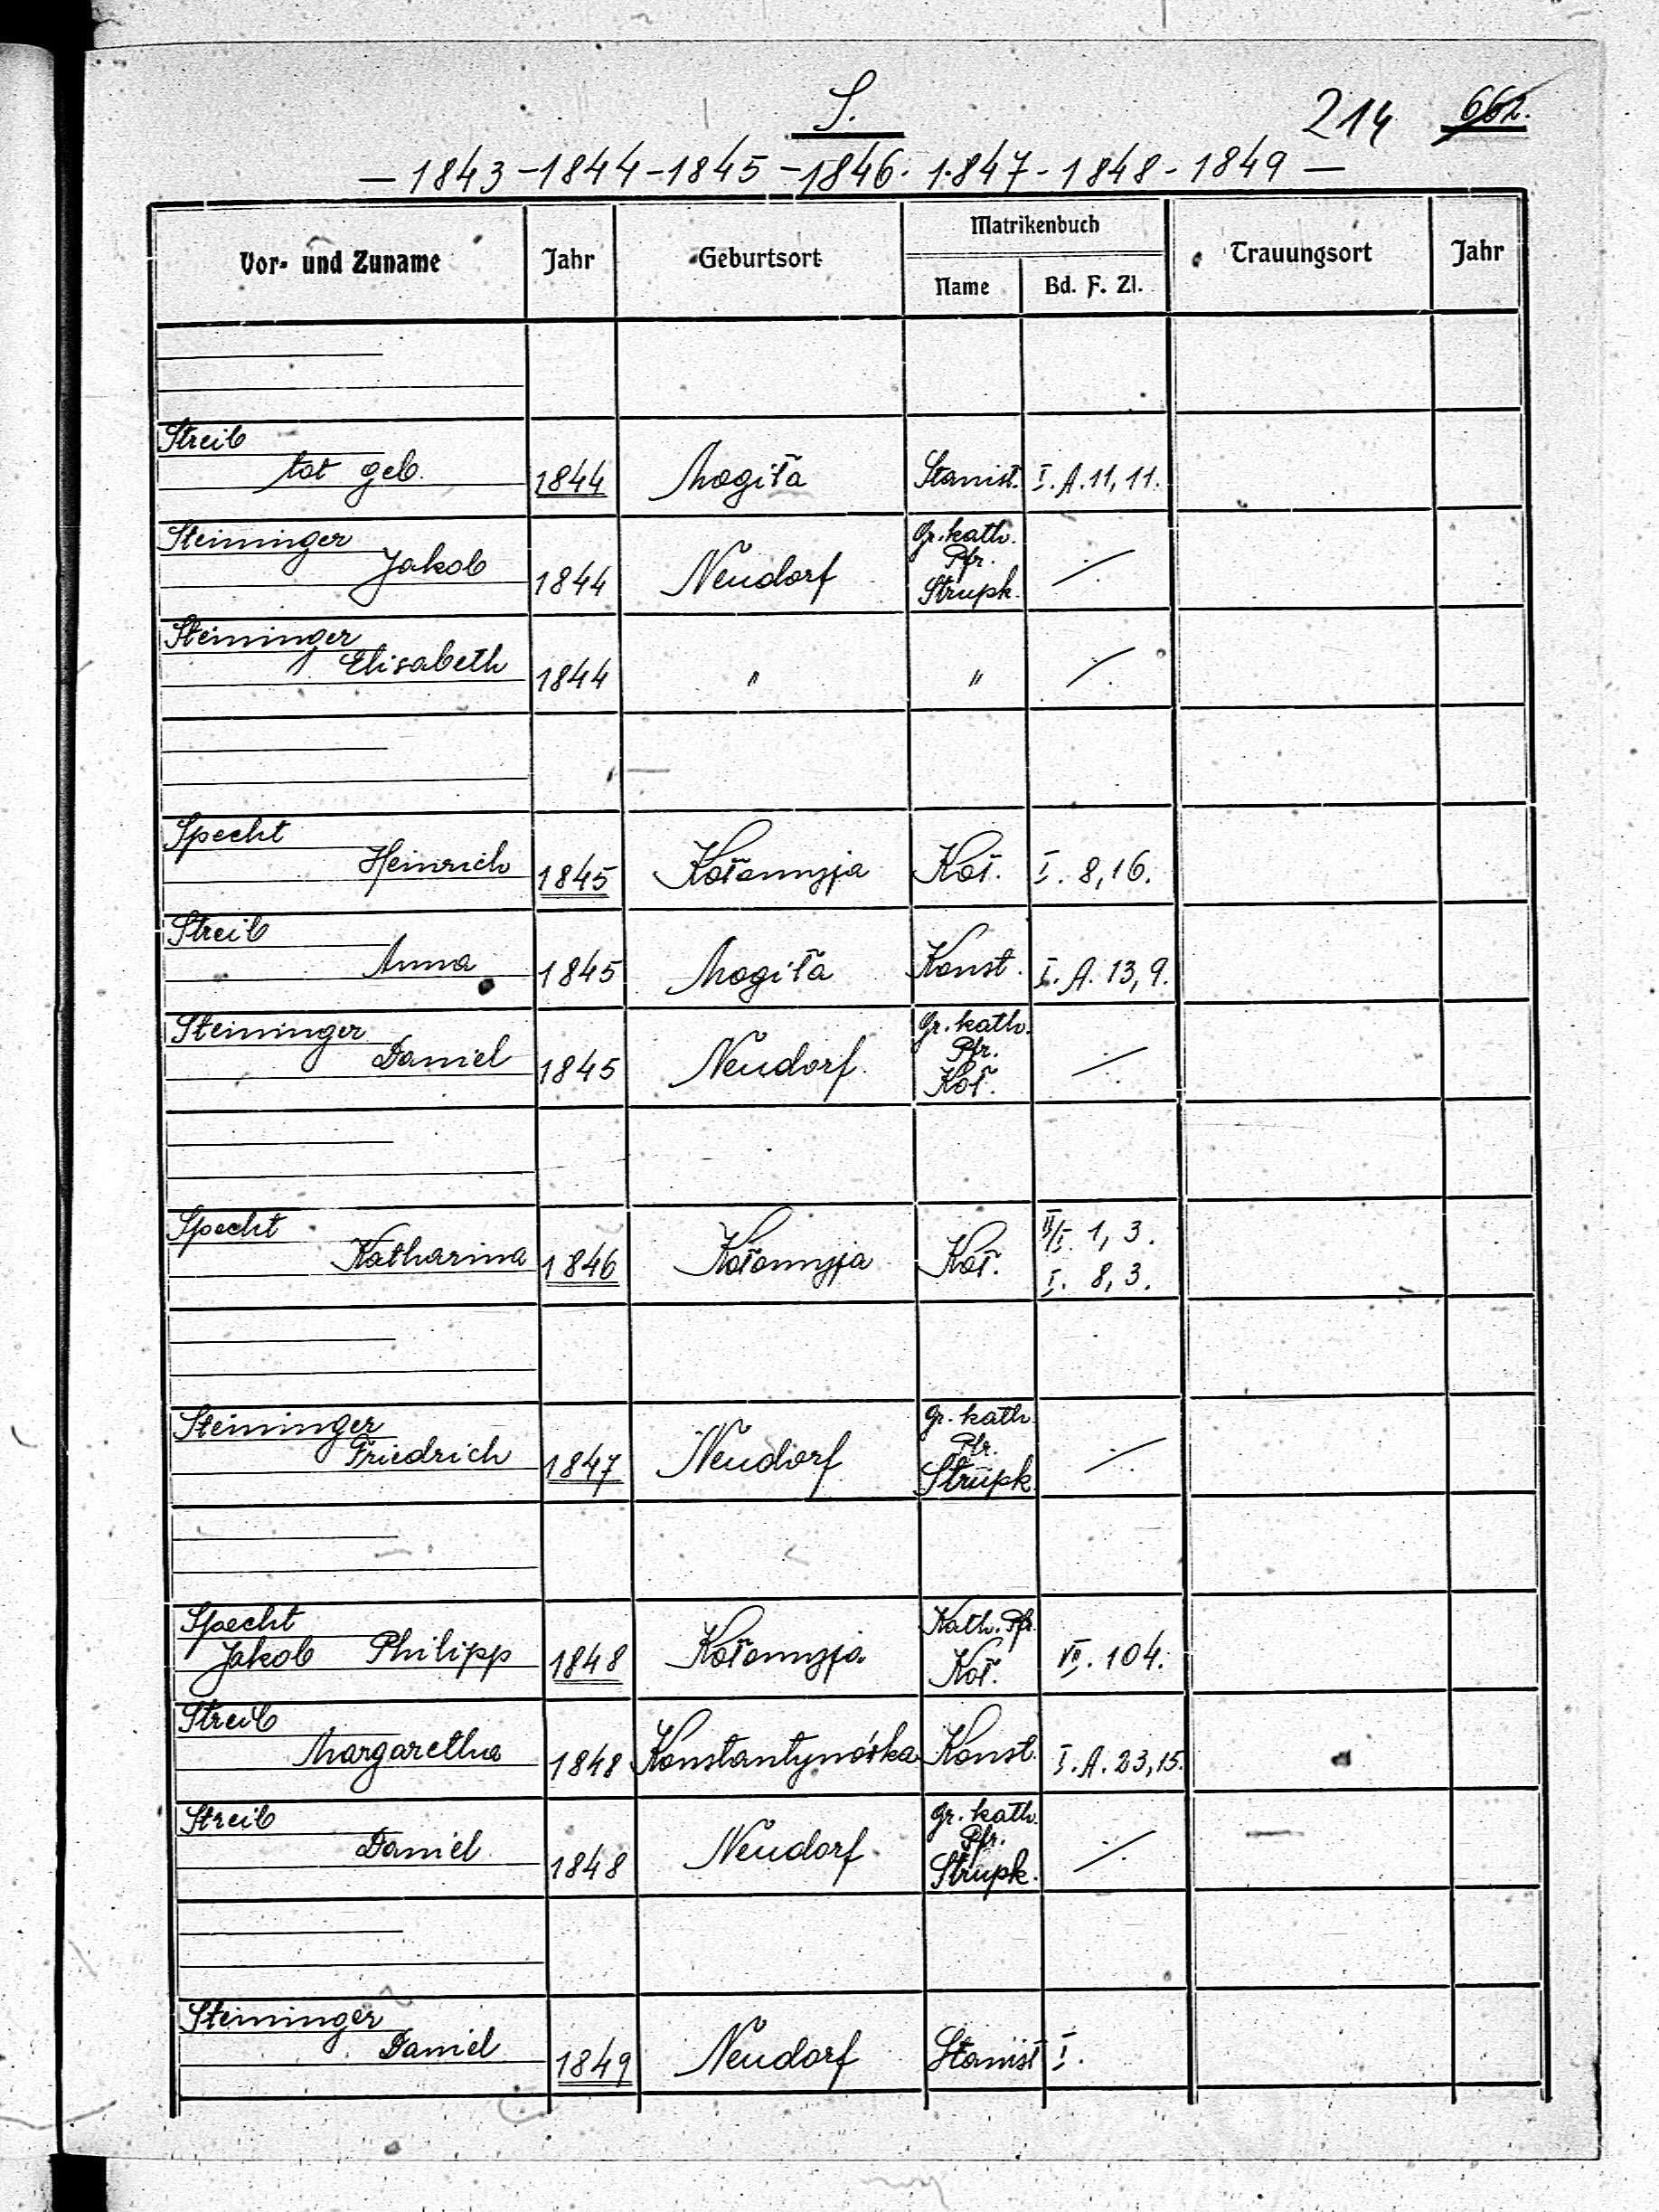 S.
214 662.
— 1843 - 1844 - 1845 - 1846. 1847 - 1848 - 1849 —
Vor- und Zuname Jahr Geburtsort Matrikenbuch Trauungsort Jahr
Name Bd. F. Zl.
Streib
tot geb. 1844 Mogiła Stanisł. I. A. 11, 11.
Steininger Gr. kath.
Jakob 1844 Neudorf Pfr. ⁒
Strupk.
Steininger
Elisabeth 1844 " " ⁒
Specht
Heinrich 1845 Kołomyja Koł. I. 8, 16.
Streib
Anna 1845 Mogiła Konst. I. A. 13, 9.
Steininger Gr. kath.
Daniel 1845 Neudorf. Pfr. ⁒
Koł.
Specht II/I. 1, 3.
Katharina 1846 Kołomyja Koł. I. 8, 3.
Steininger Gr. kath.
Friedrich 1847 Neudorf Pfr. ⁒
Strupk.
Specht Kath. Pfr.
Jakob Philipp 1848 Kołomyja Koł. 104.
Streib
Margaretha 1848 Konstantynówka Konst. I. A. 23, 15.
Streib Gr. kath.
Daniel 1848 Neudorf. Pfr. ⁒
Strupk.
Steininger
Daniel 1849 Neudorf Stanisł I.